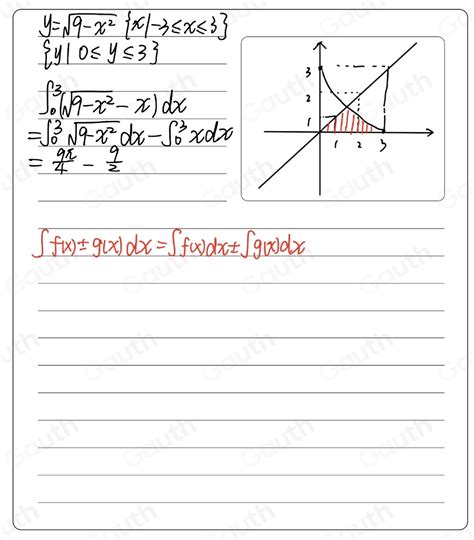 y=√(9-x²) {x|-3≤x≤3}
{y| 0≤ y ≤3}
∫₀³(√(9-x²) - x) dx
= ∫₀³ √(9-x²) dx - ∫₀³ x dx
= 9π/4 - 9/2
3
2
1
1 2 3
∫ f(x) ± g(x) dx = ∫ f(x) dx ± ∫ g(x) dx
Gauth